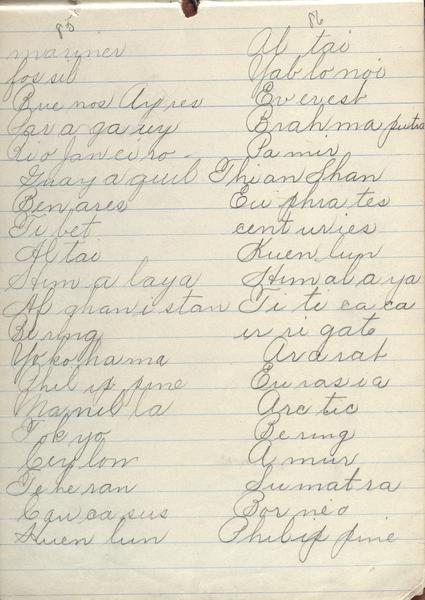 85
mariner
fossil
Buenos Ayres
Paragauy
Rio Janeiro.
Guayaquil
Benares
Tibet
Altai
Himalaya
Afghanistan
Bering
Yokohama
Philippine
Manilla
Tokyo
Ceylon
Teheran
Caucasus
Kuenlun
86
Altai
Yablonoi
Everest
Brahmaputra
Pamir
Thian Shan
Euphrates
centuries
Kuenlun
Himalaya
Titicaca
irrigate
Ararat
Eurasia
Arctic
Bering
Amur
Sumatra
Borneo
Philippine